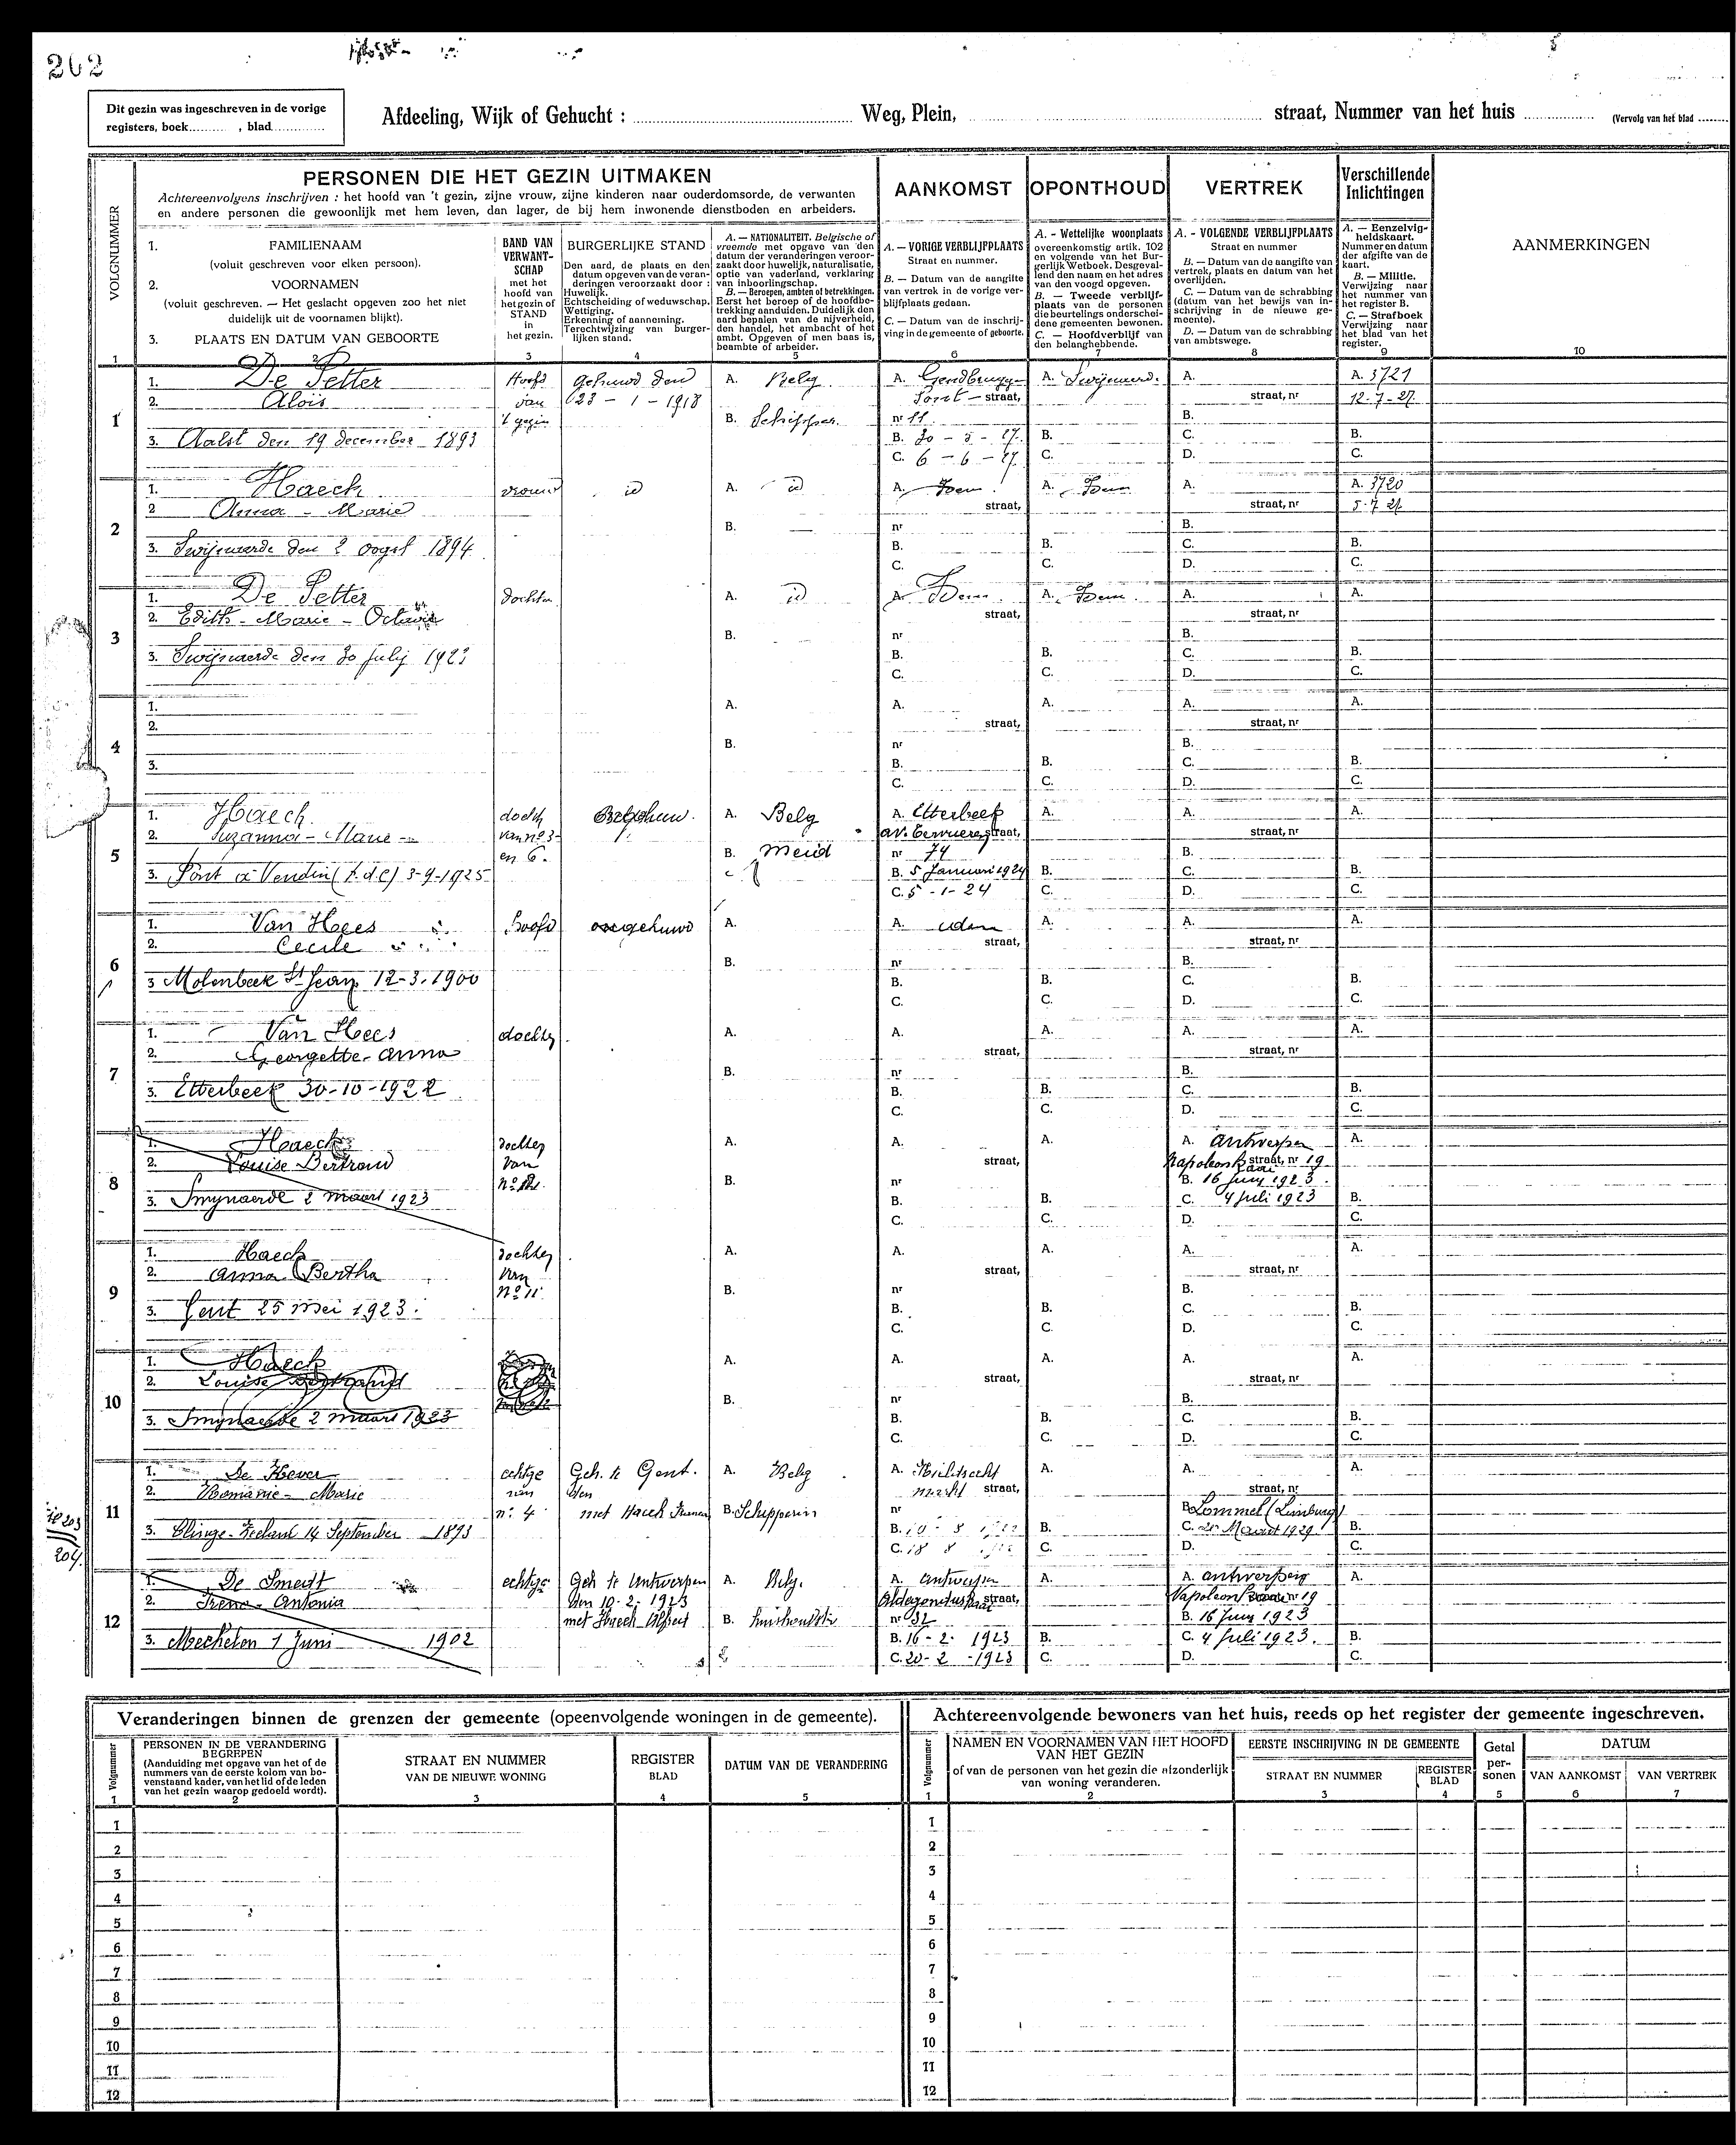 202
Dit gezin was ingeschreven in de vorige
registers, boek.........., blad.............
Afdeeling, Wijk of Gehucht : .......... Weg, Plein, .......... straat, Nummer van het huis .......... (Vervolg van het blad ........
VOLGNUMMER
PERSONEN DIE HET GEZIN UITMAKEN
Achtereenvolgens inschrijven : het hoofd van 't gezin, zijne vrouw, zijne kinderen naar ouderdomsorde, de verwanten
en andere personen die gewoonlijk met hem leven, dan lager, de bij hem inwonende dienstboden en arbeiders.
1. FAMILIENAAM
(voluit geschreven voor elken persoon).
2. VOORNAMEN
(voluit geschreven. — Het geslacht opgeven zoo het niet
duidelijk uit de voornamen blijkt).
3. PLAATS EN DATUM VAN GEBOORTE
BAND VAN
VERWANT-
SCHAP
met het
hoofd van
het gezin of
STAND
in
het gezin.
BURGERLIJKE STAND
Den aard, de plaats en den
datum opgeven van de veran-
deringen veroorzaakt door :
Huwelijk.
Echtscheiding of weduwschap.
Wettiging.
Erkenning of aanneming.
Terechtwijzing van burger-
lijken stand.
A. — NATIONALITEIT. Belgische of
vreemde met opgave van den
datum der veranderingen veroor-
zaakt door huwelijk, naturalisatie,
optie van vaderland, verklaring
van inboorlingschap.
B. — Beroepen, ambten of betrekkingen.
Eerst het beroep of de hoofdbe-
trekking aanduiden. Duidelijk den
aard bepalen van de nijverheid,
den handel, het ambacht of het
ambt. Opgeven of men baas is,
beambte of arbeider.
AANKOMST
A. — VORIGE VERBLIJFPLAATS
Straat en nummer.
B. — Datum van de aangifte
van vertrek in de vorige ver-
blijfplaats gedaan.
C. — Datum van de inschrij-
ving in de gemeente of geboorte.
OPONTHOUD
A. - Wettelijke woonplaats
overeenkomstig artik. 102
en volgende van het Bur-
gerlijk Wetboek. Desgeval-
lend den naam en het adres
van den voogd opgeven.
B. — Tweede verblijf-
plaats van de personen
die beurtelings onderschei-
dene gemeenten bewonen.
C. — Hoofdverblijf van
den belanghebbende.
VERTREK
A. - VOLGENDE VERBLIJFPLAATS
Straat en nummer
B. — Datum van de aangifte van
vertrek, plaats en datum van het
overlijden.
C. — Datum van de schrabbing
(datum van het bewijs van in-
schrijving in de nieuwe ge-
meente).
D. — Datum van de schrabbing
van ambtswege.
Verschillende
Inlichtingen
A. — Eenzelvig-
heidskaart.
Nummer en datum
der afgifte van de
kaart.
B. — Militie.
Verwijzing naar
het nummer van
het register B.
C. — Strafboek
Verwijzing naar
het blad van het
register.
AANMERKINGEN
1 2 3 4 5 6 7 8 9 10
1
1. De Petter Hoofd gehuwd den A. Belg A. Gendbrugge A. Swijnaerd. A. A. 3721
2. Aloïs van 23 - 1 - 1918 straat, straat, nr 12-7-27
't gezin B. Schipper. nr 11 B.
3. Aalst den 19 december 1893 B. 30 - 5 - 27. B. C. B.
C. 6 - 6 - 27 C. D. C.
2
1. Haeck vrouw id A. id A. Idem. A. Idem A. A. 3720
2 Anna - Marie straat, straat, nr
B. — nr B.
3. Swijnaerde den 2 oogst 1894 B. B. C. B.
C. C. D. C.
3
1. De Petter dochter A. id A. Idem. A. Idem. A. A.
2. Edith - Marie - straat, straat, nr
B. nr B.
3. Swijnaerde den 30 july 1923 B. B. C. B.
C. C. D. C.
4
1. A. A. A. A. A.
2. straat, straat, nr
B. nr B.
3. B. B. C. B.
C. C. D. C.
5
1. Haeck. A. Belg A. Etterbeek A. A. A.
2. Suzanna - Marie van no 3- straat, straat, nr
en 6. B. Meid nr 74 B.
3. Pont à Vendin (P.d.C) 3-9-1925 B. 5 Januari 1924 B. C. B.
C. 5 -1- 24 C. D. C.
6
1. Van Hees hoofd A. A. idem A. A. A.
2. Cecile straat, straat, nr
B. nr B.
3 Molenbeek St Jean 12-3-1900 B. B. C. B.
C. C. D. C.
7
1. Van Hees dochter A. A. A. A. A.
2. Georgette-Anna straat, straat, nr
B. nr B.
3. Etterbeek 30-10-1922 B. B. C. B.
C. C. D. C.
8
1. Haeck dochter A. A. A. A. Antwerpen A.
2. Louise Bertrand van straat, Napoleonkaai straat, nr 19
B. nr B. 16 Juny 1923.
3. Smynaerde 2 maart 1923 B. B. C. 4 Juli 1923 B.
C. C. D. C.
9
1. Haeck dochter A. A. A. A. A.
2. Anna Bertha van straat, straat, nr
no 11. B. nr B.
3. Gent 25 mei 1923. B. B. C. B.
C. C. D. C.
10
1. Haeck A. A. A. A. A.
2. Louise straat, straat, nr
B. nr B.
3. Smynaerde 2 maart 1923 B. B. C. B.
C. C. D. C.
11
1. De Kever echtge Geh. te Gent. A. Belg A. A. A. A.
2. Marie van den straat, straat, nr
no. 4 met Haeck B. Schipperin nr B. Lommel (Limburg)
3. Clinge 14 September 1893 B. B. C. Maart 1929 B.
C. C. D. C.
fo 203
204.
12
1. De Smedt echtge Geh te Antwerpen A. Belg. A. Antwerpen A. A. Antwerpen A.
2. Antonia den 10-2-1923 straat, Napoleonkaai nr 19
met Haeck Albert B. huishoudster nr 32 B. 16 Juny 1923
3. Mechelen 1 Juni 1902 B. 16-2-1923 B. C. 4 Juli 1923. B.
C. 20-2-1923 C. D. C.
Veranderingen binnen de grenzen der gemeente (opeenvolgende woningen in de gemeente).
Volgnummer
PERSONEN IN DE VERANDERING
BEGREPEN
(Aanduiding met opgave van het of de
nummers van de eerste kolom van bo-
venstaand kader, van het lid of de leden
van het gezin waarop gedoeld wordt).
STRAAT EN NUMMER
VAN DE NIEUWE WONING
REGISTER
BLAD
DATUM VAN DE VERANDERING
1 2 3 4 5
1
2
3
4
5
6
7
8
9
10
11
12
Achtereenvolgende bewoners van het huis, reeds op het register der gemeente ingeschreven.
Volgnummer
NAMEN EN VOORNAMEN VAN HET HOOFD
VAN HET GEZIN
of van de personen van het gezin die afzonderlijk
van woning veranderen.
EERSTE INSCHRIJVING IN DE GEMEENTE
STRAAT EN NUMMER
REGISTER
BLAD
Getal
per-
sonen
DATUM
VAN AANKOMST
VAN VERTREK
1 2 3 4 5 6 7
1
2
3
4
5
6
7
8
9
10
11
12